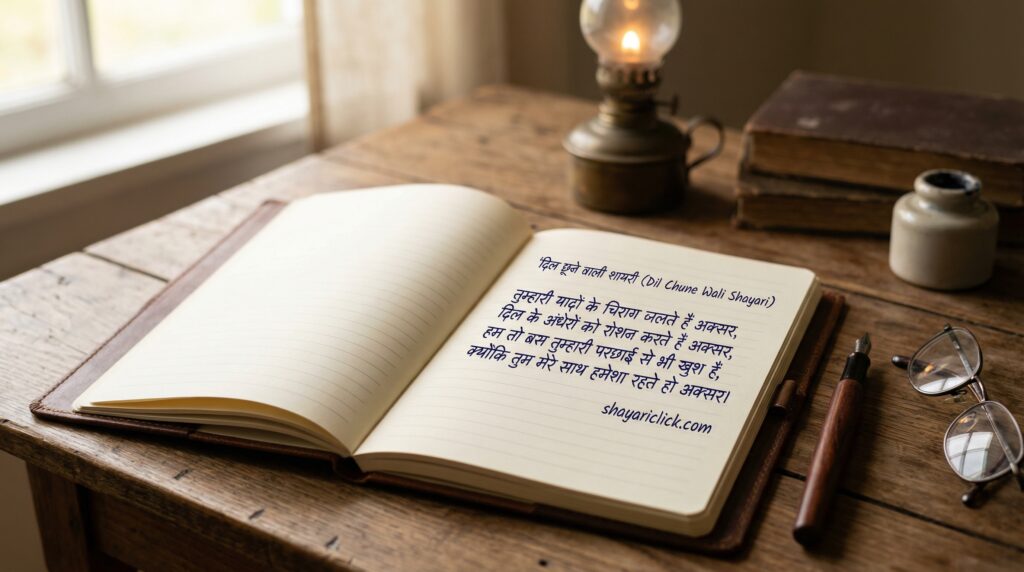 'दिल छूने वाली शायरी (Dil Chune Wali Shayari)
तुम्हारी यादों के चिराग जलते हैं अक्सर,
दिल के अंधेरों को रोशन करते हैं अक्सर,
हम तो बस तुम्हारी परछाई से भी खुश हैं,
क्योंकि तुम मेरे साथ हमेशा रहते हो अक्सर।
shayariclick.com